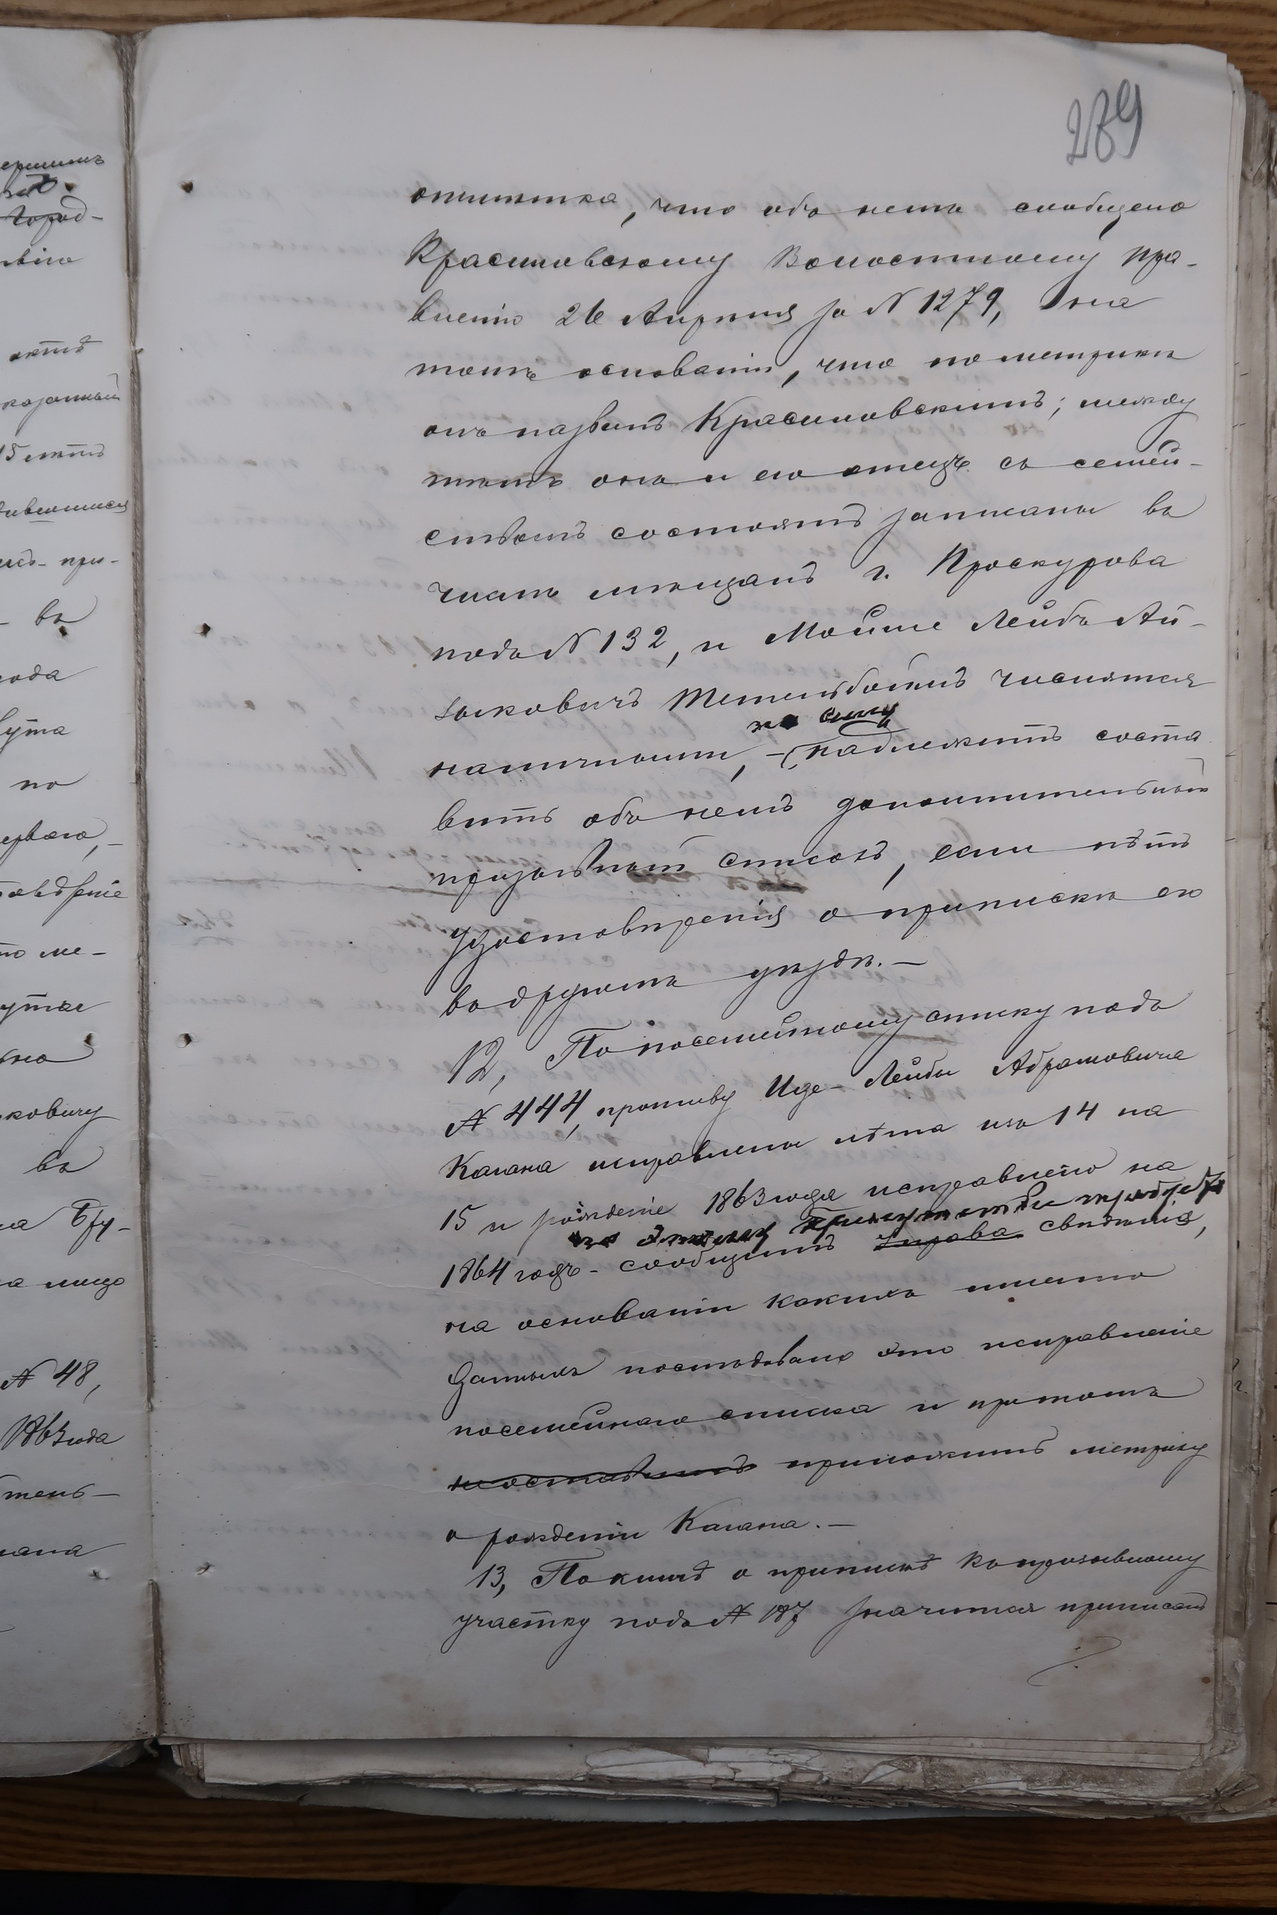 289
отмѣтка, что объ немъ сообщено
Красиловскому Волостному Пра-
вленію 26 Апрѣля за № 1279, на
томъ основаніи, что по метрикѣ
онъ названъ Красиловскимъ; между
тѣмъ онъ и его отецъ съ семей-
ствомъ состоятъ записаны въ
числѣ мѣщанъ г. Проскурова
подъ № 132, и Мойше Лейбъ Ай-
зыковичъ числится
наличнымъ, – надлежитъ соста
вить объ немъ дополнительный
призывной списокъ, если нѣтъ
удостовѣренія о припискѣ его
въ другомъ уѣздѣ. –
12, По посемейному списку подъ
№ 444, противу Иде-Лейбы Абрамовича
Кагана исправлены лѣта изъ 14 на
15 и рожденіе 1863 года исправлено на
1864 годъ – сообщитъ Управа свѣдѣнія,
на основаніи какихъ именно
данныхъ послѣдовало это исправленіе
посемейнаго списка и притомъ
приложитъ метрику
о рожденіи Кагана. –
13, По книгѣ о припискѣ къ призывному
участку подъ № 187 значится приписанъ
актѣ
15 лѣтъ
при-
въ
года
по
перваго, –
то ме-
ковичу
въ
на лицо
№ 48,
1863 года